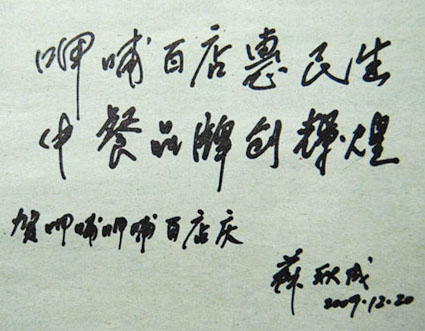 呷哺百店惠民生
中餐品牌创辉煌
贺呷哺呷哺百店庆
苏秋成
2009.12.20